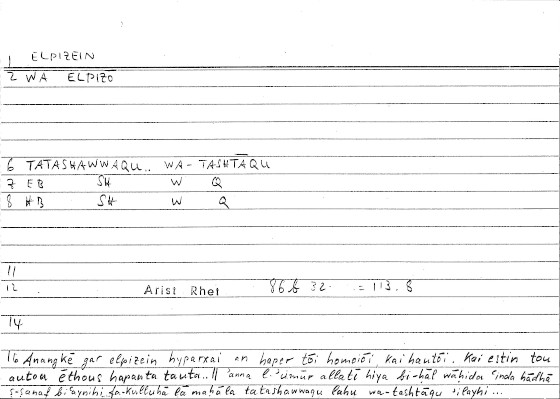 1 ELPIZEIN
2 WA ELPIZŌ
6 TATASHAWWAQU.. WA-TASHTĀQU
7 EB SH W Q
8 HB SH W Q
11
12 Arist Rhet 86b 32 = 113.8
14
16 Anangkē gar elpizein hyparxai an hoper tōi homoiōi kai hautōi. Kai estin tou
autou ēthous hapanta tauta.. // 'anna l-'umūr allatī hiya bi-hāl wāhida 'inda hādhā
s-sanaf bi-'aynihi fa-kulluhā lā mahāla tatashawwaqu lahu wa-tashtāqu 'ilayhi...